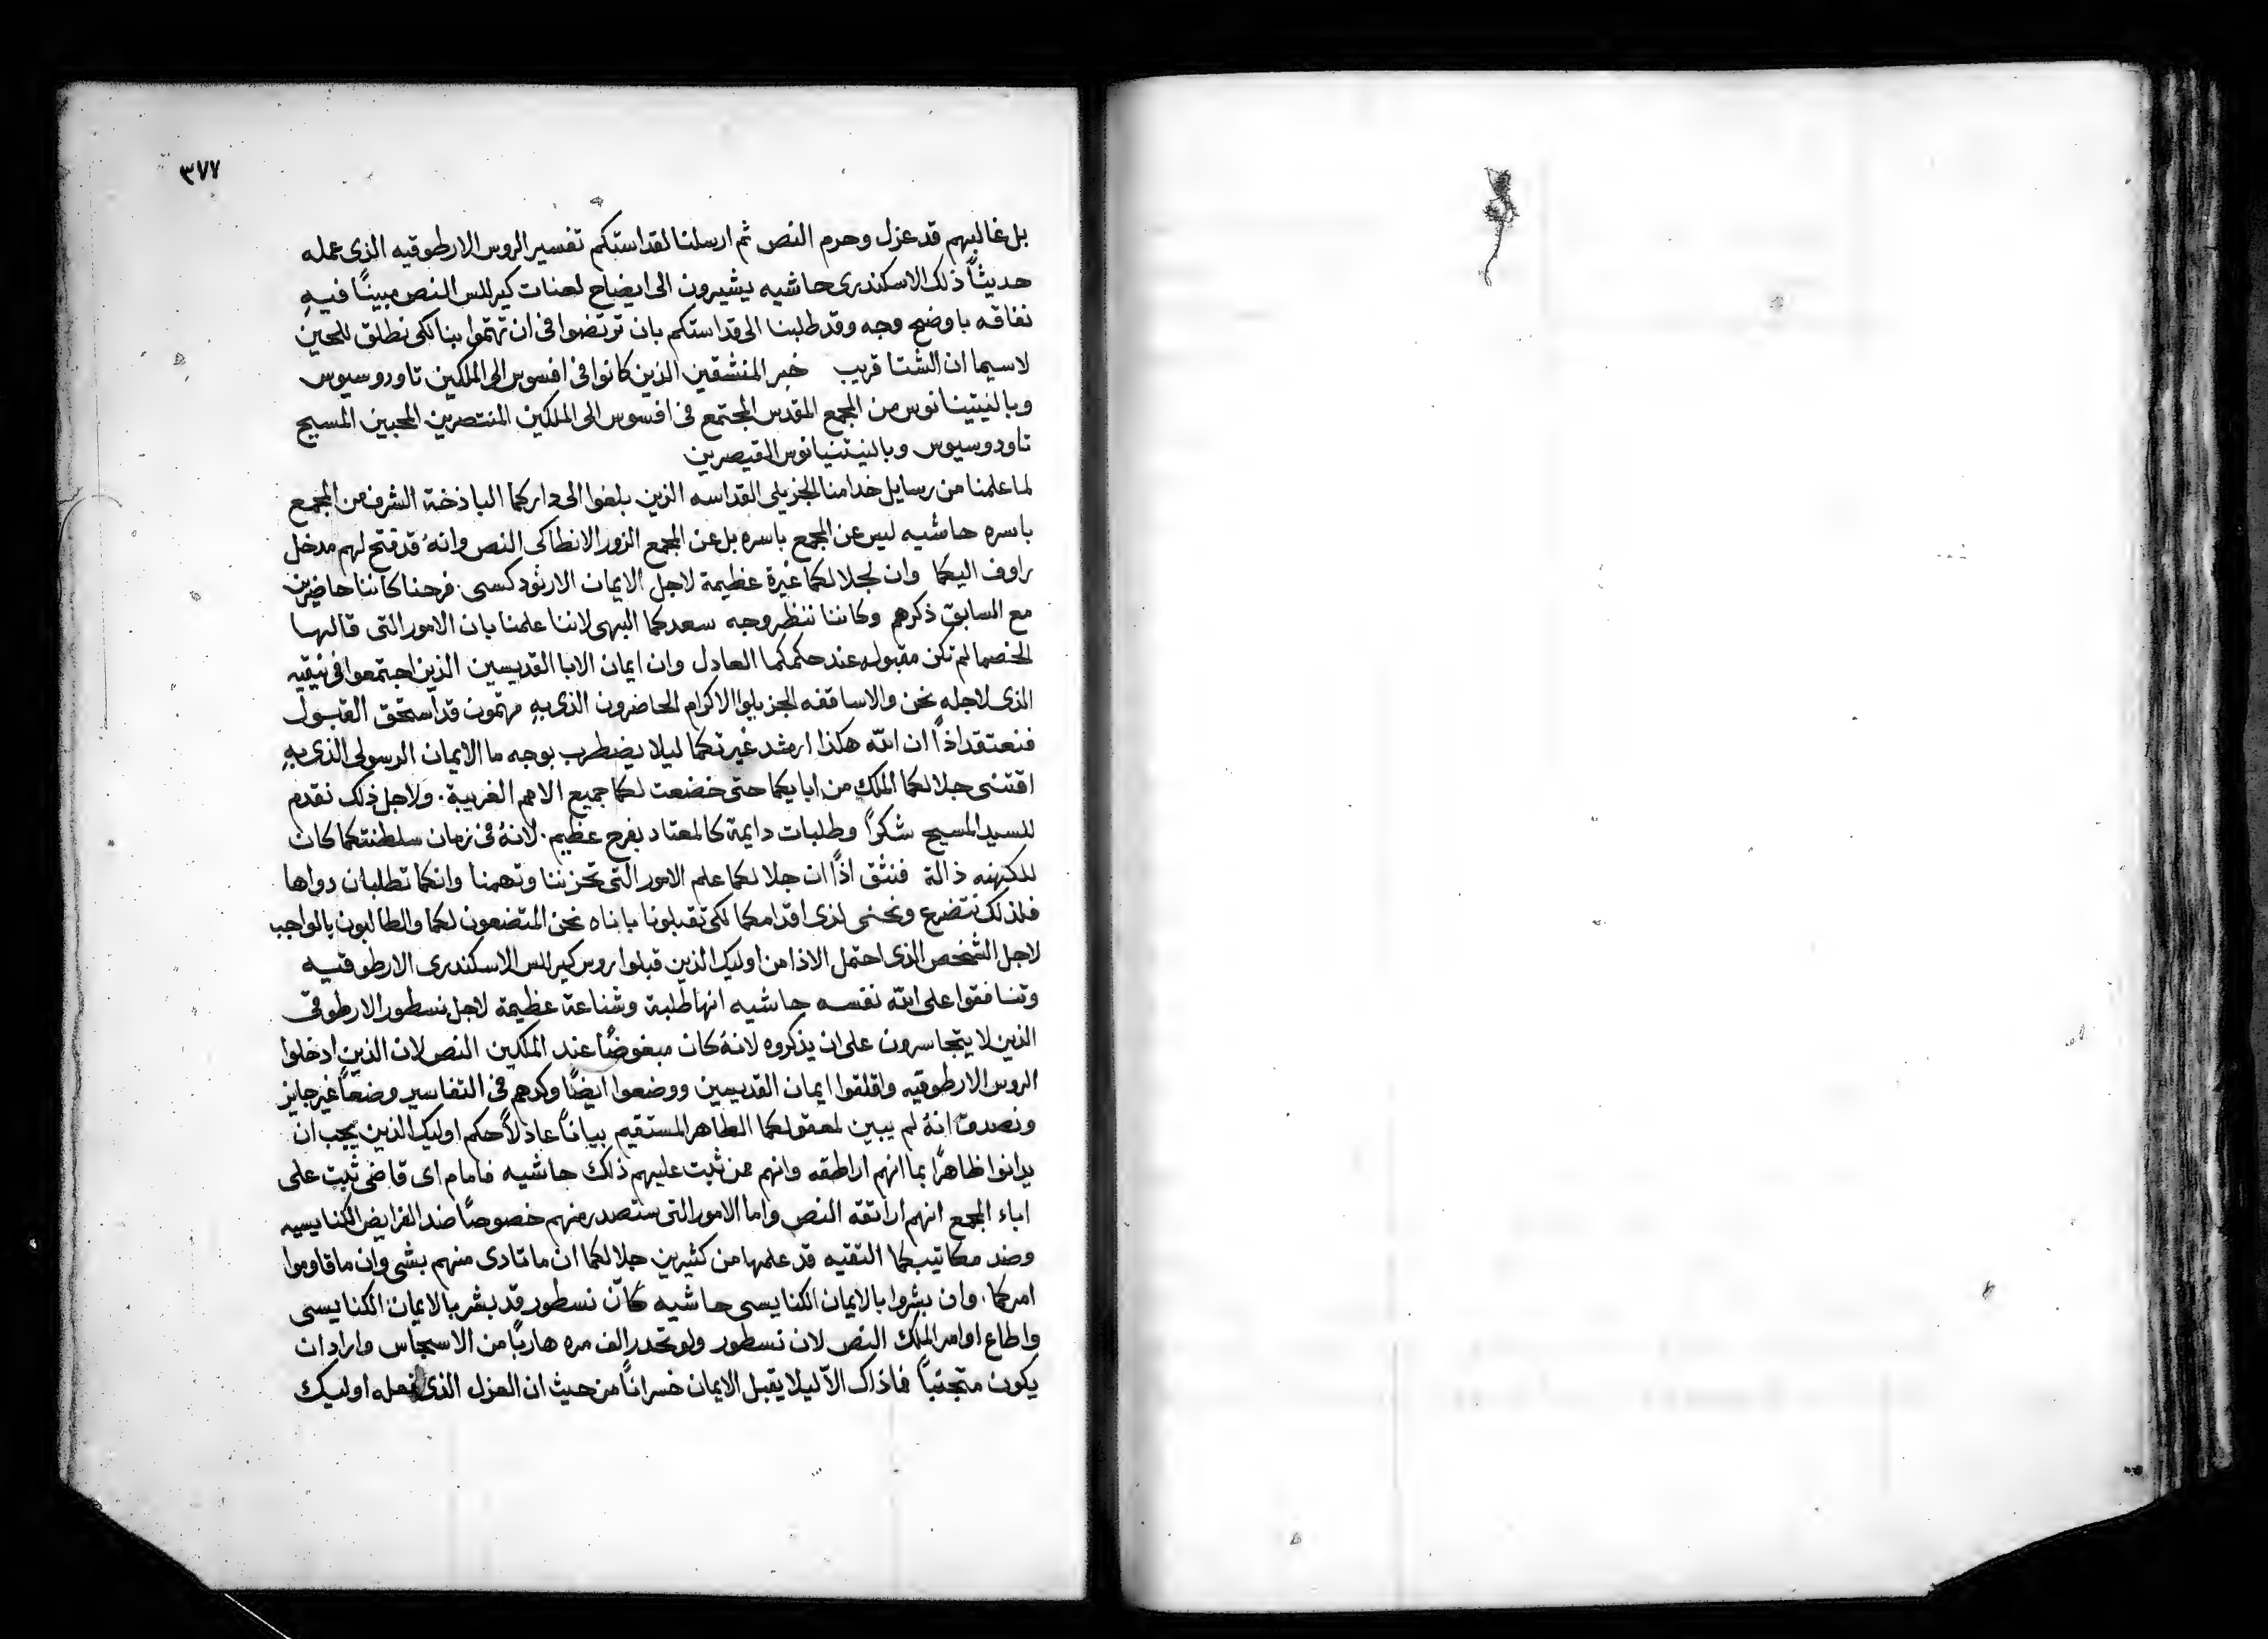 ٣٧٧
بل غالبهم قد عزل وحرم النص ثم ارسلنا لقداستكم تفسير الروس الارطوقيه الذى عمله
حديثاً ذلك الاسكندرى حاشيه يشيرون الى ايضاح لعنات كيرللس النص مبيناً فيهِ
نفاقه باوضح وجه وقد طلبنا الى قداستكم بان ترتضوا فى ان تهتموا بنا لكى نطلق للحين
لاسيما ان الشتا قريب خبر المنشقين الذين كانوا فى افسوس الى الملكين تاودوسيوس
وبالنيتينانوس من المجمع المقدس المجتمع فى افسوس الى الملكين المنتصرين المحبين المسيح
تاودوسيوس وبالنيتنيانوس القيصرين
لما علمنا من رسايل خدامنا الجزيلى القداسه الذين بلغوا الى داركما الباذخة الشرف من المجمع
باسره حاشيه ليس عن المجمع باسره بل عن المجمع الزور الانطاكى النص وانهُ قد فتح لهم مدخل
راوف اليكما وان لجلالكما غيرة عظيمة لاجل الايمان الارثودكسى. فرحنا كاننا حاضرين
مع السابق ذكرهم وكاننا ننظر وجه سعدكما البهى لاننا علمنا بان الامور التى قالها
الخصما لم تكن مقبوله عند حكمكما العادل وان ايمان الابا القديسين الذين اجتمعوا فى نيقيه
الذى لاجله نحن والاساقفه الجزيلوا الاكرام الحاضرون الذى بهِ مهتمون قد استحق القبول
فنعتقد اذاً ان الله هكذا ارشد غيرتكما ليلا يضطرب بوجه ما الايمان الرسولى الذى بهِ
اقتنى جلالكما الملك من ابايكما حتى خضعت لكما جميع الامم الغريبة. ولاجل ذلك نقدم
للسيد المسيح شكراً وطلبات دايمة كالمعتاد بفرح عظيم. لانهُ فى زمان سلطنتكما كان
للكهنه ذالة فنثق اذاً ان جلالكما علم الامور التى تحزننا وتهمنا وانكما تطلبان دواها
فلذلك نتضرع ونحنى لذى اقدامكما لكى تقبلونا باناه نحن المتضعون لكما والطالبون بالواجب
لاجل الشخص الذى احتمل الاذا من اوليك الذين قبلوا روس كيرللس الاسكندرى الارطوقيه
وتنافقوا على الله نفسه حاشيه انها طلبة وشناعة عظيمة لاجل نسطور الارطوقى
الذين لا يتجاسرون على ان يذكروه لانهُ كان مبغوضاً عند الملكين النص لان الذين ادخلوا
الروس الارطوقيه واقلقوا ايمان القديسين ووضعوا ايضاً وكرهم فى التفاسير وضعاً غير جايز
ونصدق انهُ لم يبين لمعقولكما الطاهر المستقيم بياناً عادلاً حكم اوليك الذين يجب ان
يدانوا ظاهراً بما انهم اراطقه وانهم ممن ثبت عليهم ذلك حاشيه فامام اى قاضى ثبت على
اباء المجمع انهم اراتقة النص واما الامور التى ستصدر منهم خصوصاً ضد الفرايض الكنايسيه
وضد مكاتيبكما التقيه قد علمها من كثيرين جلالكما ان ما تادى منهم بشى وان ما قاوموا
امركما. وان بشروا بالايمان الكنايسى حاشيه كانّ نسطور قد بشر بالايمان الكنايسى
واطاع اوامر الملك النص لان نسطور ولو تحدر الف مره هارباً من الاسجاس واراد ان
يكون متجنباً فماذاك الاّ ليلا يقبل الايمان خسراناً من حيث ان العزل الذى فعله اوليك